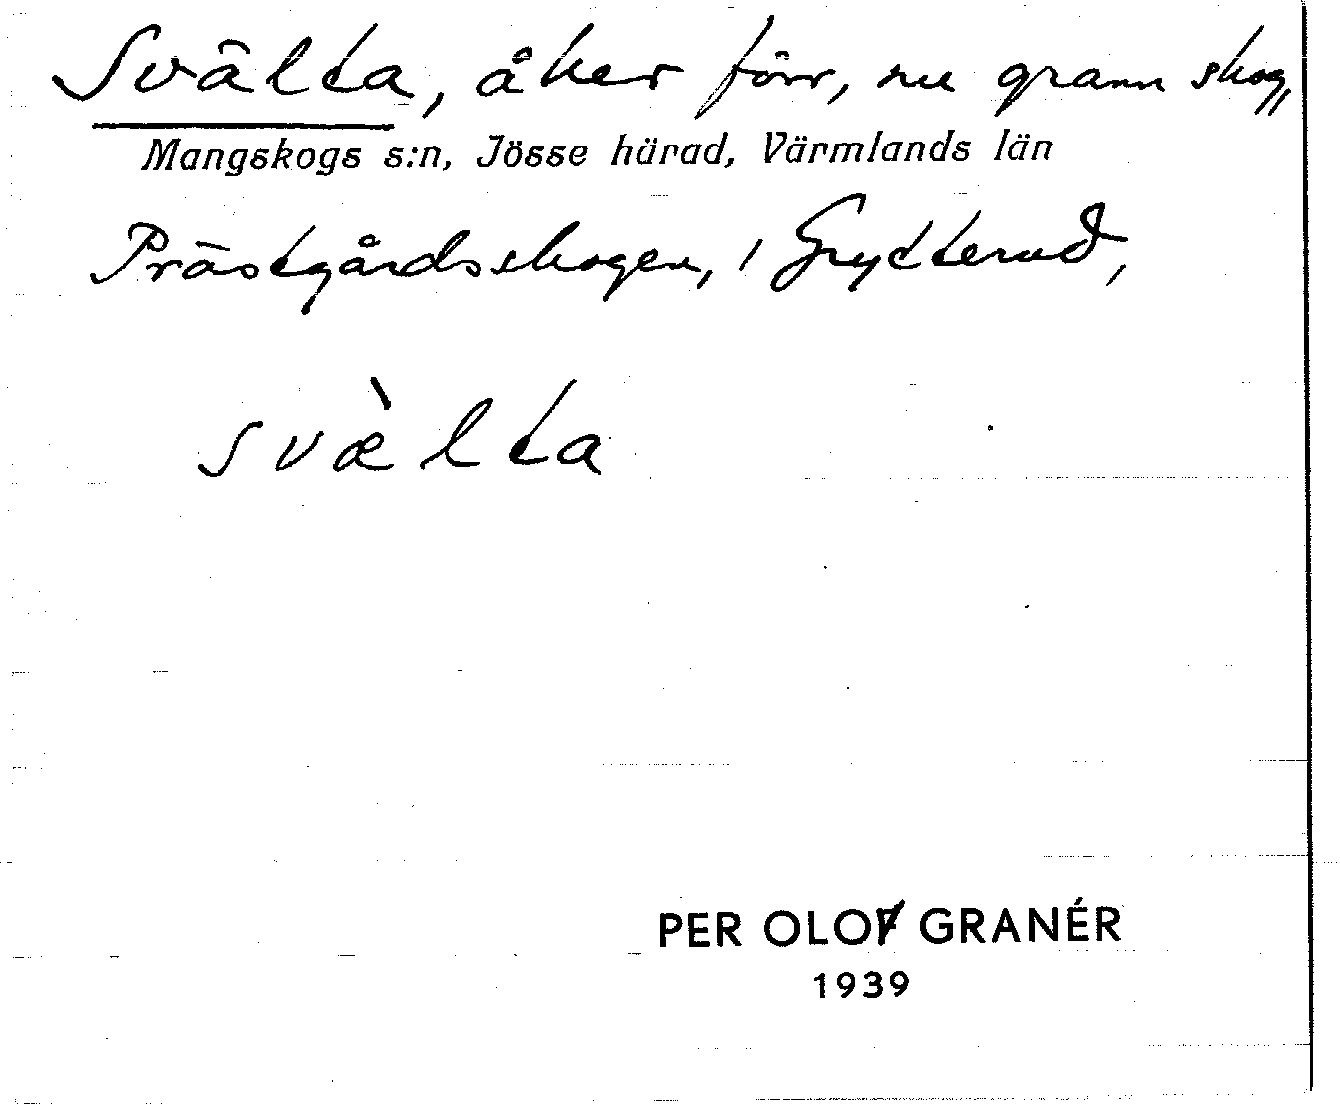 Svälta, åker förr, nu grann skog,
Mangskogs s:n, Jösse härad, Värmlands län
Prästgårdsskogen, i Grytterud,
svæ̀lta
PER OLOF GRANÉR
1939